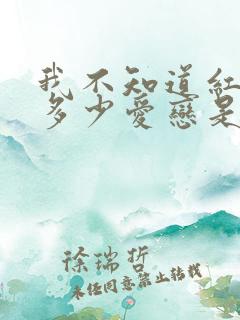 我不知道紅
多少愛戀是
徐瑞哲
未经同意禁止转载